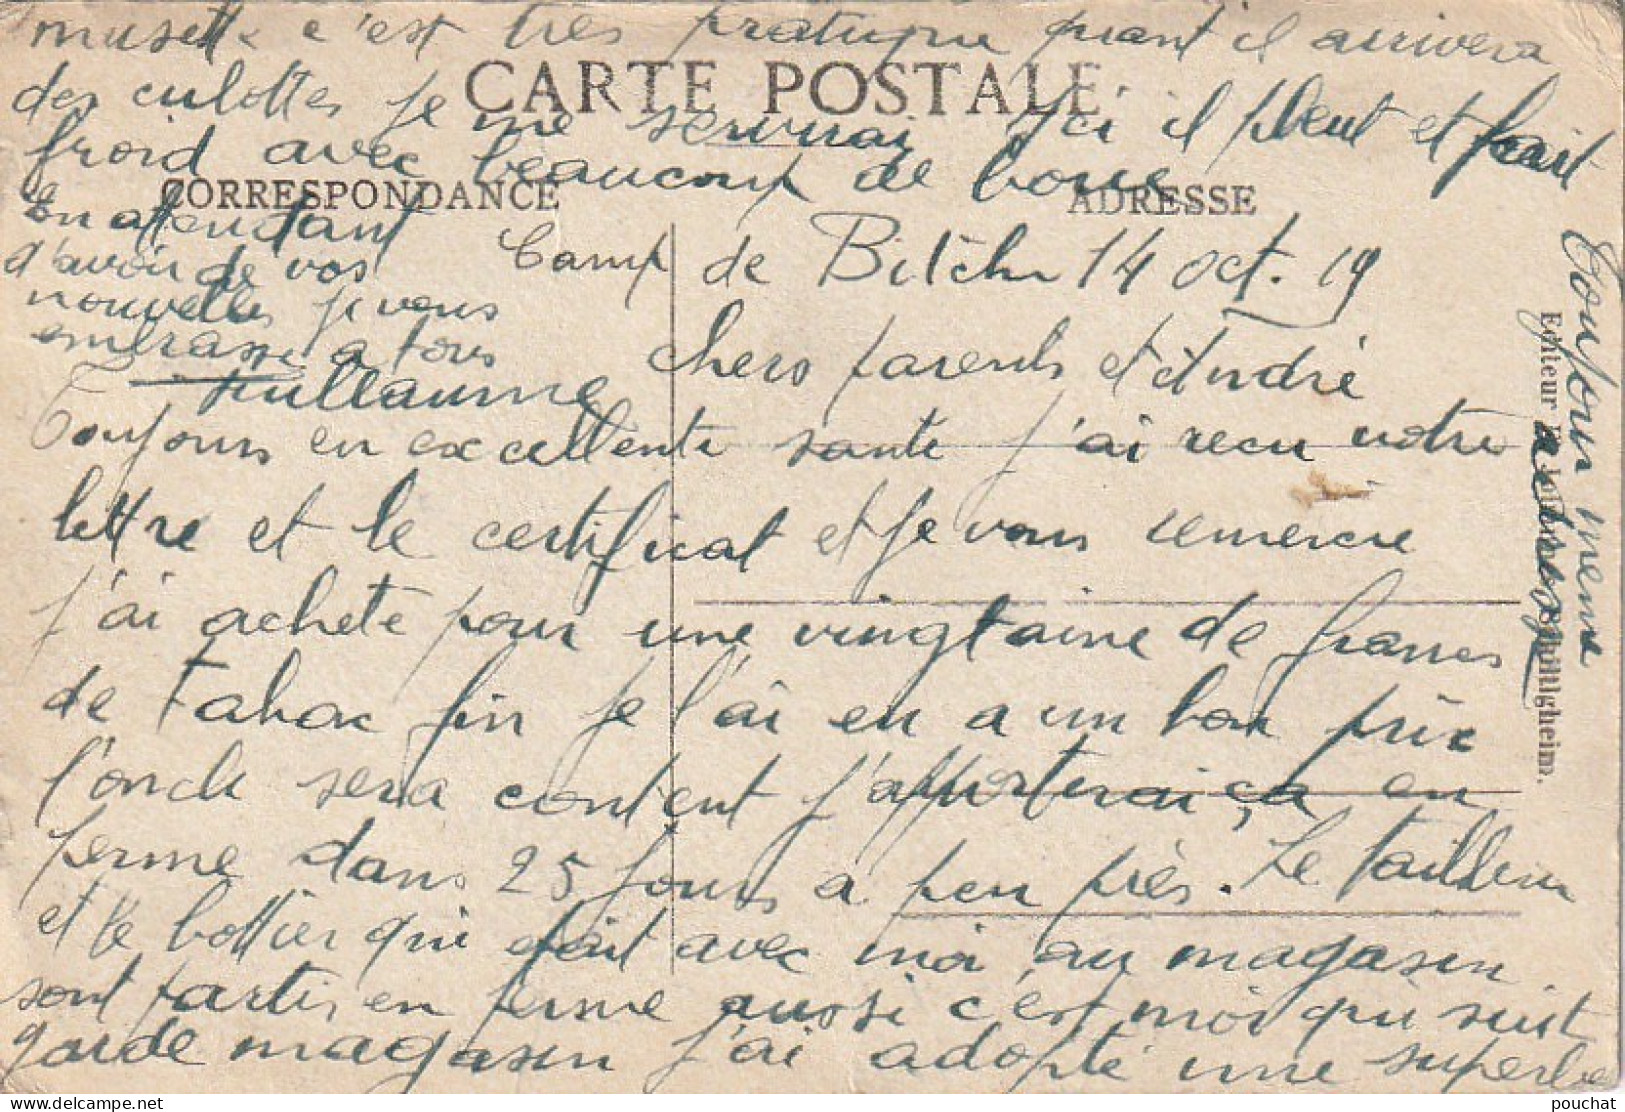 musette c'est très pratique quant il arrivera
CARTE POSTALE
des culottes je me servirai Ici il pleut et fait
froid avec beaucoup de boue
CORRESPONDANCE
ADRESSE
En attendant
d'avoir de vos
nouvelles je vous
embrasse a tous
Guillaume
Camp de Bitche 14 oct. 19
chers parents et André
Toujours en excellente santé j'ai recu votre
lettre et le certificat et je vous remercie
j'ai acheté pour une vingtaine de francs
de Tabac fin je l'ai eu a un bon prix
l'oncle sera content j'apporterai ça en
perme dans 25 jours a peu près. Le tailleur
et le bottier qui était avec moi au magasin
sont partis en perme aussi c'est moi qui suit
garde magasin j'ai adopté une superbe
Toujours meme
adresse
Editeur
Schiltigheim.
pouchat